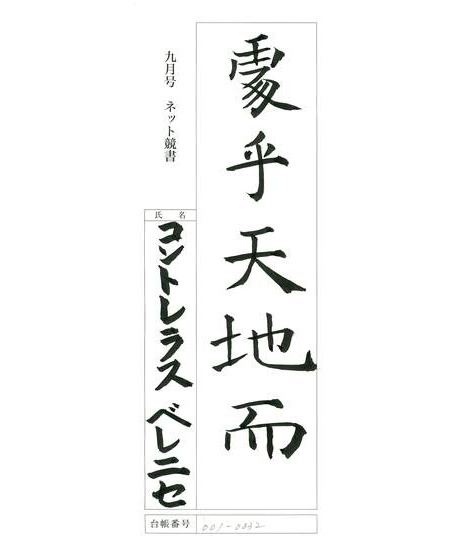 處乎天地而
九月号 ネット競書
氏 名
コントレラス ベレニセ
台帳番号 001-0032